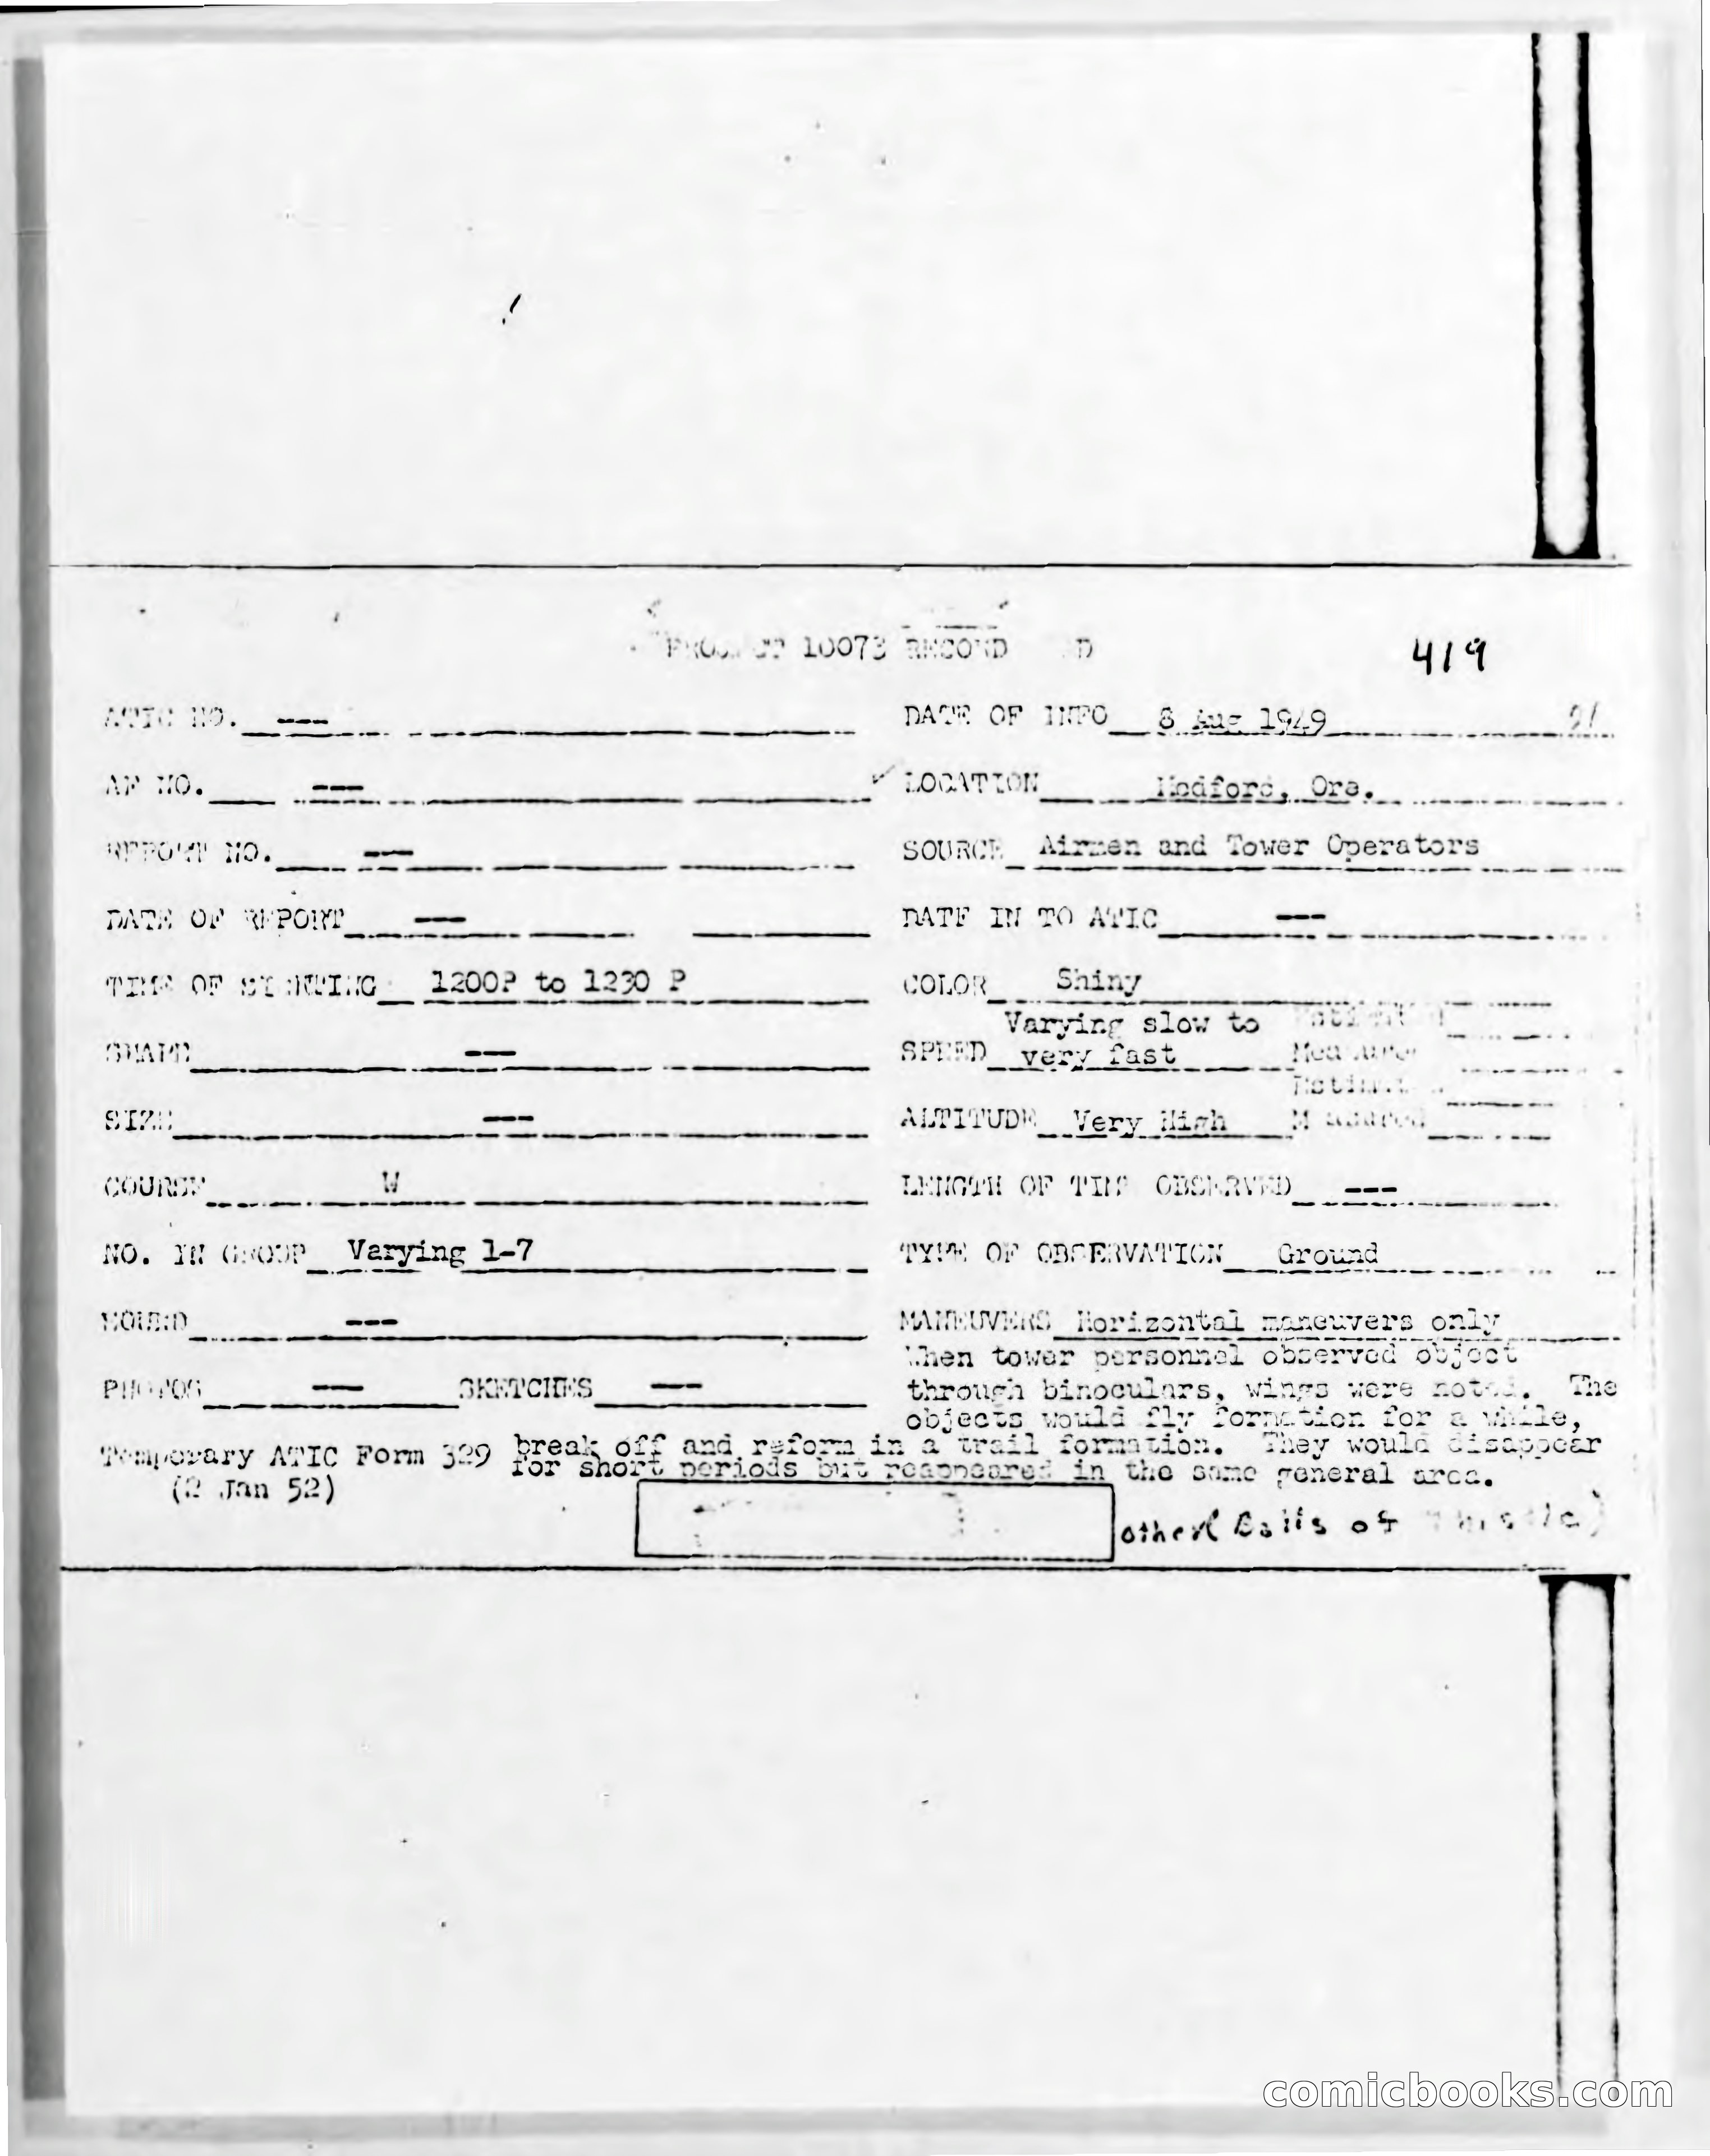 PROJECT 10073 RECORD
419
ATIC NO. ---
DATE OF INFO 8 Aug 1949
AF NO. ---
LOCATION Medford, Ore.
REPORT NO. ---
SOURCE Airmen and Tower Operators
DATE OF REPORT ---
DATE IN TO ATIC ---
TIME OF SIGHTING 1200P to 1230 P
COLOR Shiny
SHAPE ---
SPEED Varying slow to
very fast
Estimated
Measured
SIZE ---
ALTITUDE Very High
Estimated
Measured
COURSE W
LENGTH OF TIME OBSERVED ---
NO. IN GROUP Varying 1-7
TYPE OF OBSERVATION Ground
SOUND ---
MANEUVERS Horizontal maneuvers only
PHOTOS --- SKETCHES ---
When tower personnel observed object
through binoculars, wings were noted. The
objects would fly formation for a while,
break off and reform in a trail formation. They would disappear
for short periods but reappeared in the same general area.
Temporary ATIC Form 329
(2 Jan 52)
other( Balls of
comicbooks.com